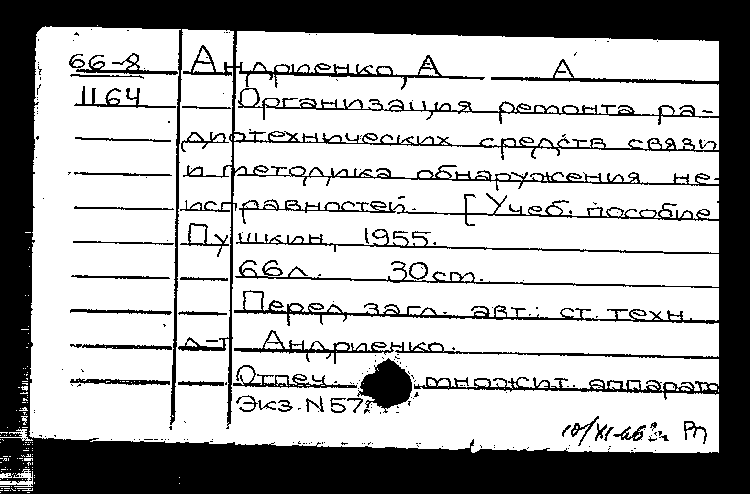 66-8 Андриенко, А А
1164 Организация ремонта ра-
диотехнических средств связи
и методика обнаружения не-
исправностей. [Учеб. пособие
Пушкин, 1955.
66л. 30см.
Перед загл. авт.: ст. техн.
л-т Андриенко.
Отпеч. множит. аппарат
Экз. N 57
10/XI-66г. Рп